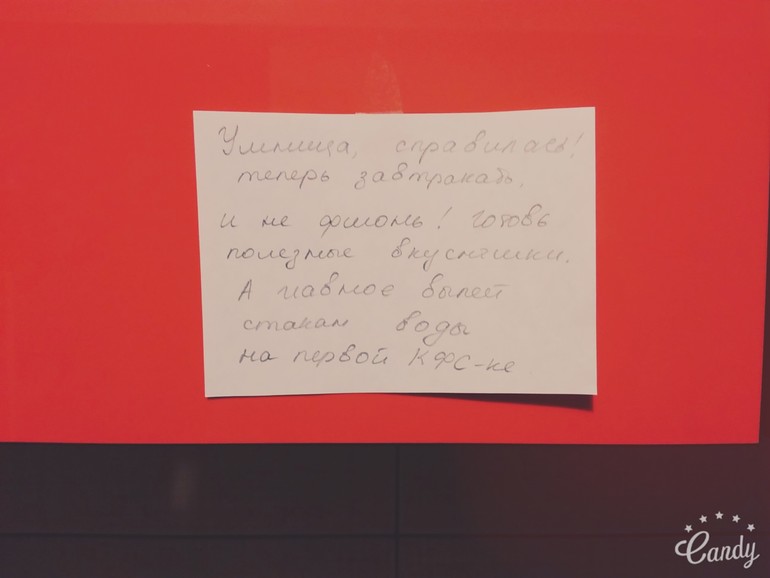 Умница, справилась!
теперь завтракать,
и не филонь! готовь
полезные вкусняшки.
А главное выпей
стакан воды
на первой КФС-ке
Candy